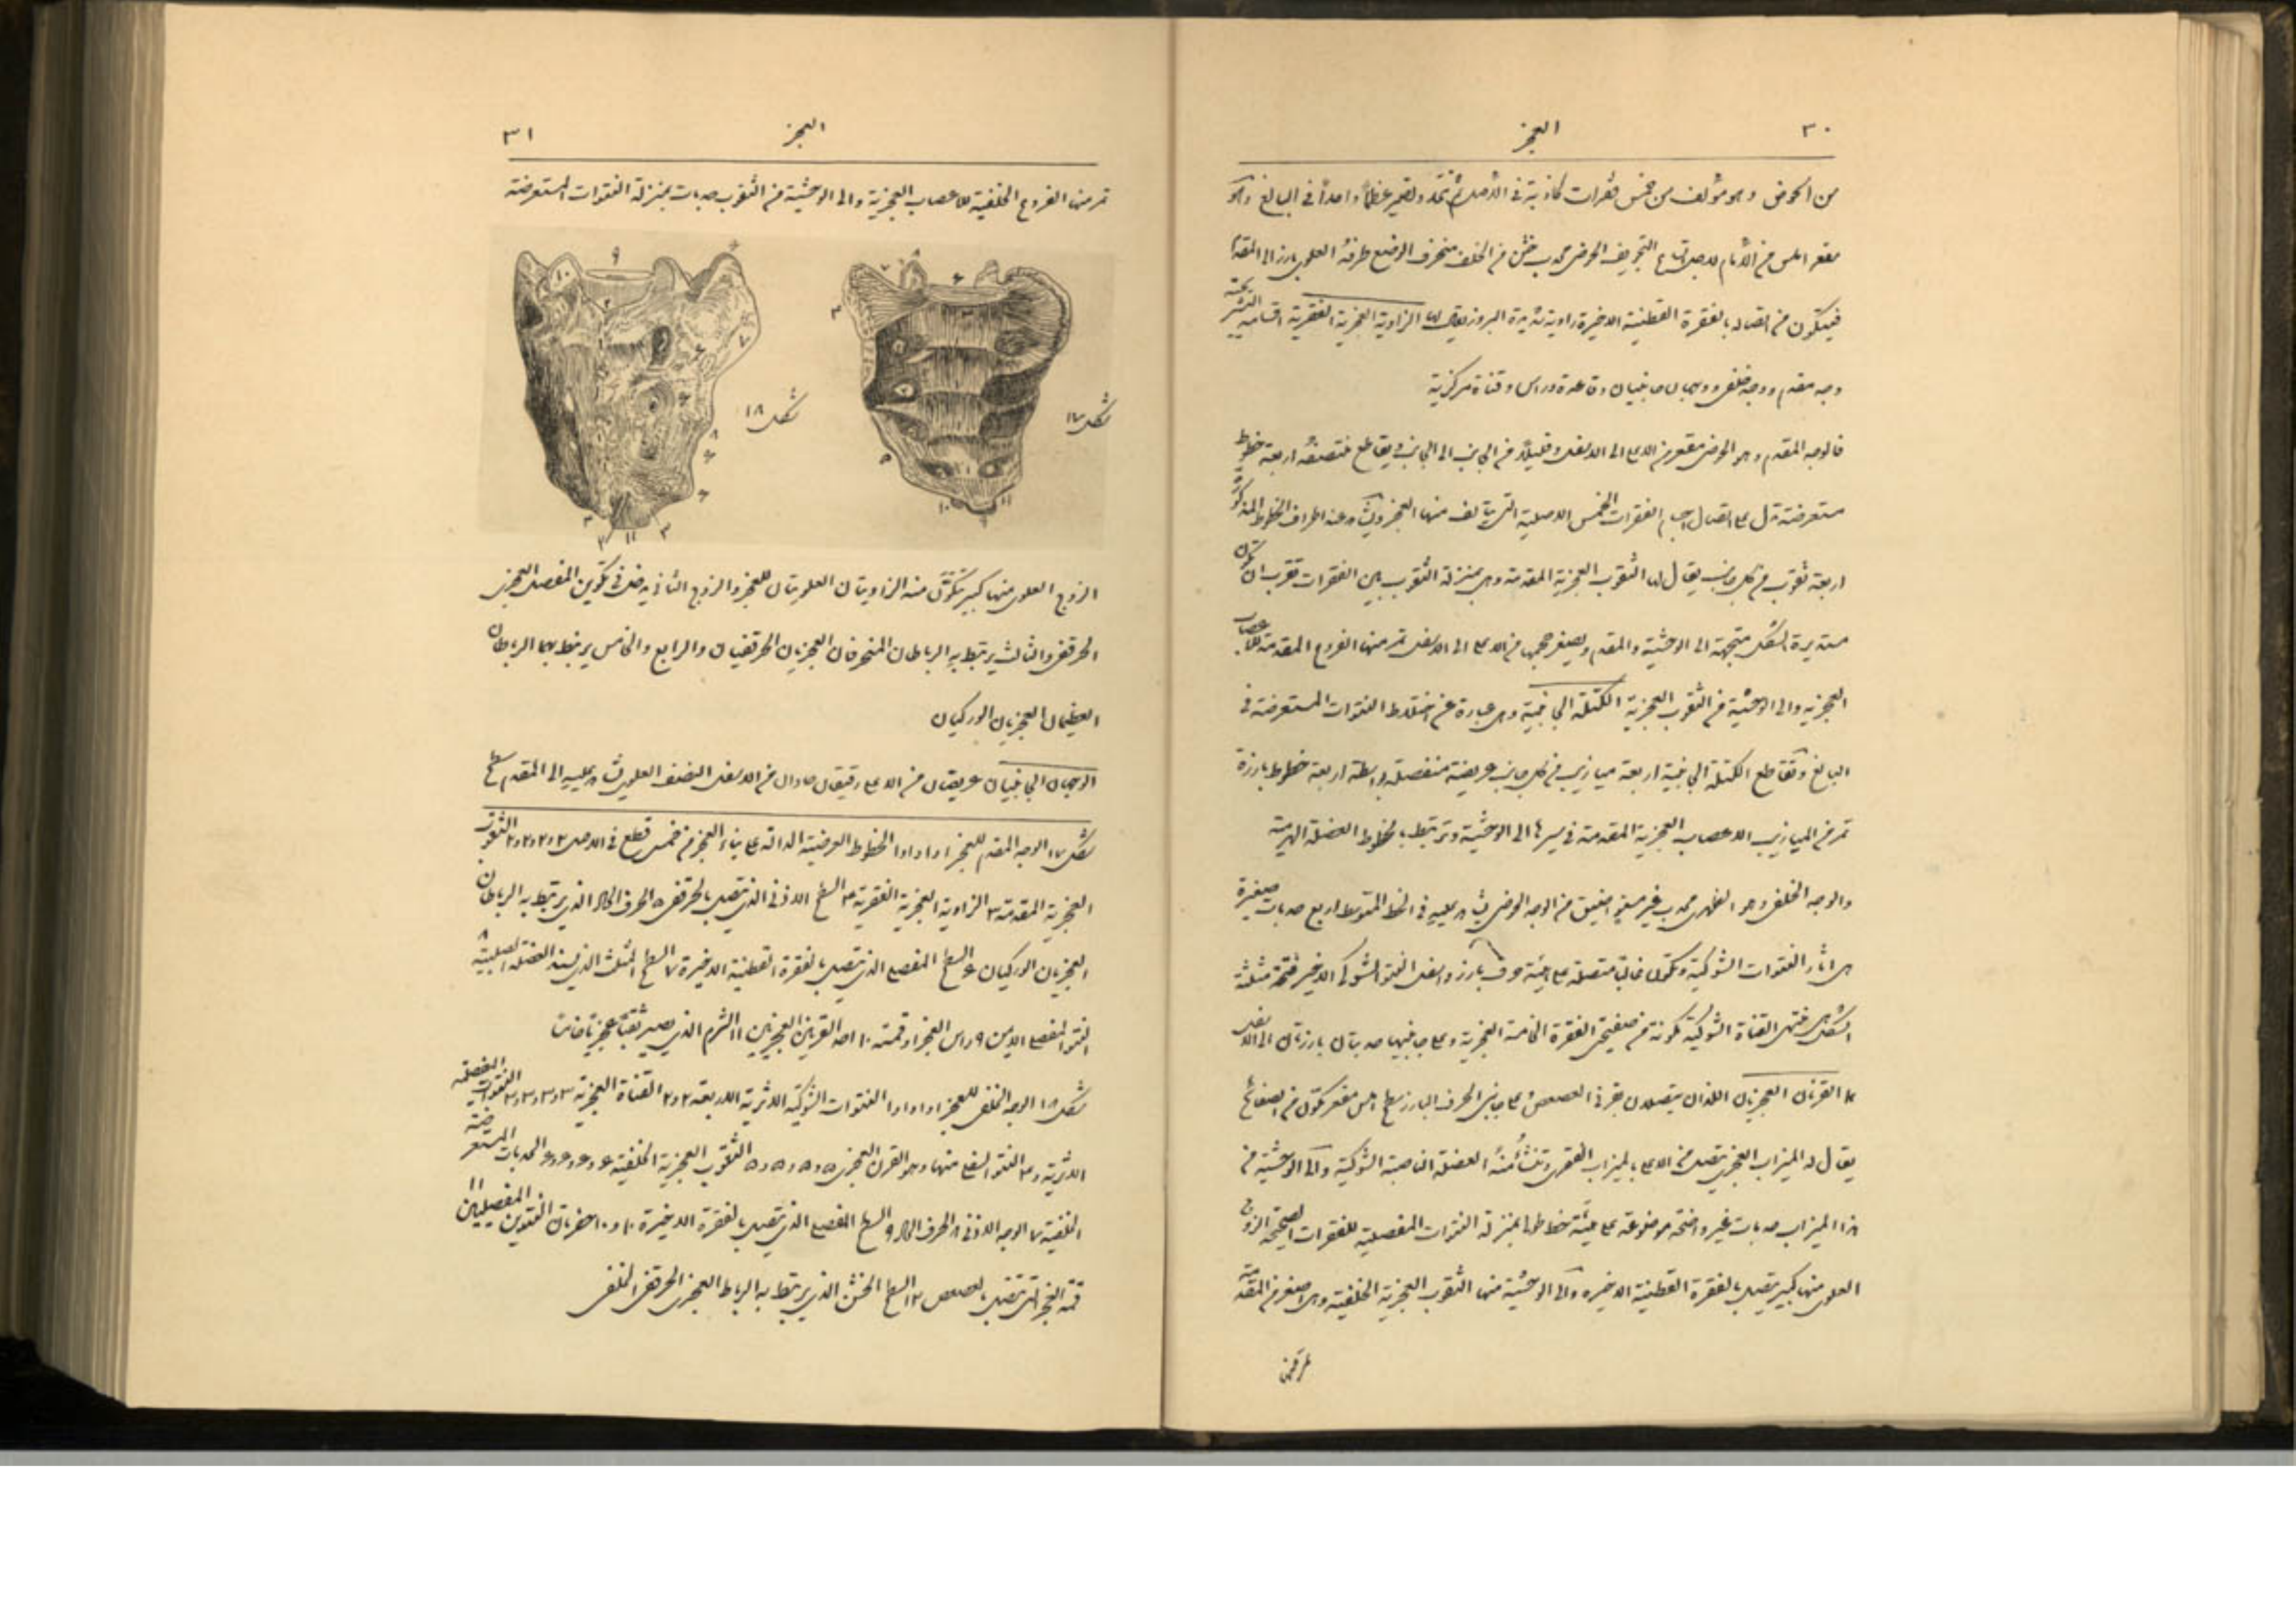 ٣٠
العجز
من الحوض وهو مؤلف من خمس فقرات كاذبة في الأصل ثم تتحد وتصير عظماً واحداً في البالغ وهو
مقعر املس من الأمام لاجل اتساع التجويف الحوضي محدب خشن من الخلف منحرف الوضع طرفه العلوي بارز الى المقدم
فيتكون من اتصاله بالفقرة القطنية الاخيرة زاوية شديدة البروز يقال لها الزاوية العجزية الفقرية اقسامه التشريحية
وجه مقدم ووجه خلفي ووجهان جانبيان وقاعدة وراس وقناة مركزية
فالوجه المقدم وهو الحوضي مقعر من الاعلى الى الاسفل وقليلاً من الجانب الى الجانب ويقاطع منتصفه اربعة خطوط
مستعرضة تدل على اتصال اجسام الفقرات الخمس الاصلية التي يتألف منها العجز ويشاهد عند اطراف الخطوط المذكورة
اربعة ثقوب من كل جانب يقال لها الثقوب العجزية المقدمة وهي بمنزلة الثقوب بين الفقرات تقرب ان تكون
مستديرة الشكل متجهة الى الوحشية والمقدم ويصغر حجمها من الاعلى الى الاسفل تمر منها الفروع المقدمة للاعصاب
العجزية والى الوحشية من الثقوب العجزية الكتلة الجانبية وهي عبارة عن اختلاط النتوات المستعرضة في
البالغ وتقاطع الكتلة الجانبية اربعة ميازيب من كل جانب عريضة منفصلة بواسطة اربعة خطوط بارزة
تمر في الميازيب الاعصاب العجزية المقدمة في سيرها الى الوحشية وترتبط بالخطوط العضلة الهرمية
والوجه الخلفي وهو الظهري محدب غير مستوٍ اضيق من الوجه الحوضي يشاهد عليه في الخط المتوسط اربع حدبات صغيرة
هي اثار النتوات الشوكية وتكون غالباً متصلة على هيئة حرف بارز واسفل النتو الشوكي الاخير فتحة مثلثة
الشكل هي منتهى القناة الشوكية مكونة من صفيحتي الفقرة الخامسة العجزية وعلى جانبيها حدبتان بارزتان الى الاسفل
هما القرنان العجزيان اللذان يتصلان بقرني العصعص وعلى جانبي الحرف البارز سطح املس مقعر مكون من الصفائح
يقال له الميزاب العجزي يتصل من الاعلى بالميزاب الفقري وتنشأ منه العضلة الناصبة الشوكية والى الوحشية من
هذا الميزاب حدبات غير واضحة موضوعة على هيئة خط طولي بمنزلة النتوات المفصلية للفقرات الصحيحة الزوج
العلوي منها كبير يتصل بالفقرة القطنية الاخيره والى الوحشية منها الثقوب العجزية الخلفية وهي اصغر من المقدمة
٣١
العجز
تمر منها الفروع الخلفية للاعصاب العجزية والى الوحشية من الثقوب حدبات بمنزلة النتوات المستعرضة
شكل ١٧
شكل ١٨
الزوج العلوي منها كبير تتكون منه الزاويتان العلويتان للعجز والزوج الثاني يدخل في تكوين المفصل العجزي
الحرقفي والثالث يرتبط به الرباطان المنحرفان العجزيان الحرقفيان والرابع والخامس يرتبط بهما الرباطان
العظيمان العجزيان الوركيان
الوجهان الجانبيان عريضان من الاعلى رقيقان حادان من الاسفل النصف العلوي يشاهد عليه الى المقدم سطح
شكل ١٧ الوجه المقدم للعجز ١ و١ و١ و١ الخطوط العرضية الدالة على بناء العجز من خمس قطع في الاصل ٢ و٢ و٢ و٢ الثقوب
العجزية المقدمة ٣ الزاوية العجزية الفقرية ٤ السطح الاذني الذي يتصل بالحرقفي ٥ الحرف الحاد الذي يرتبط به الرباطان
العجزيان الوركيان ٦ السطح المفصلي الذي يتصل بالفقرة القطنية الاخيرة ٧ السطح المثلث الذي يسند العضلة الصلبية ٨
النتو المفصلي الايمن ٩ راس العجز او قمته ١٠ احد القرنين العجزيين ١١ الشرم الذي يصير ثقباً عجزياً خامساً
شكل ١٨ الوجه الخلفي للعجز ١ و١ و١ و١ النتوات الشوكية الاثرية الاربعة ٢ و٢ القناة العجزية ٣ و٣ و٣ و٣ النتوات المفصلية
الاثرية و٣ النتو السفلي منها وهو القرن العجزي ٥ و٥ و٥ و٥ الثقوب العجزية الخلفية ٦ و٦ و٦ و٦ الحدبات المستعرضة
الخلفية ٧ الوجه الاذني ٨ الحرف الحاد ٩ السطح المفصلي الذي يتصل بالفقرة الاخيرة ١٠ و١٠ حفرتان النتوين المفصليين ١١
قمة العجز التي تتصل بالعصعص ١٢ السطح الخشن الذي يرتبط به الرباط العجزي الحرقفي الخلفي